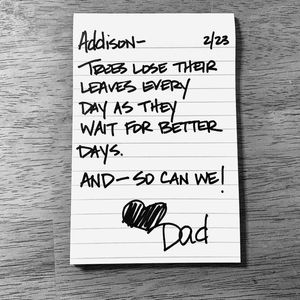 Addison- 2/23
TREES LOSE THEIR
LEAVES EVERY
DAY AS THEY
WAIT FOR BETTER
DAYS.
AND-SO CAN WE!
Dad